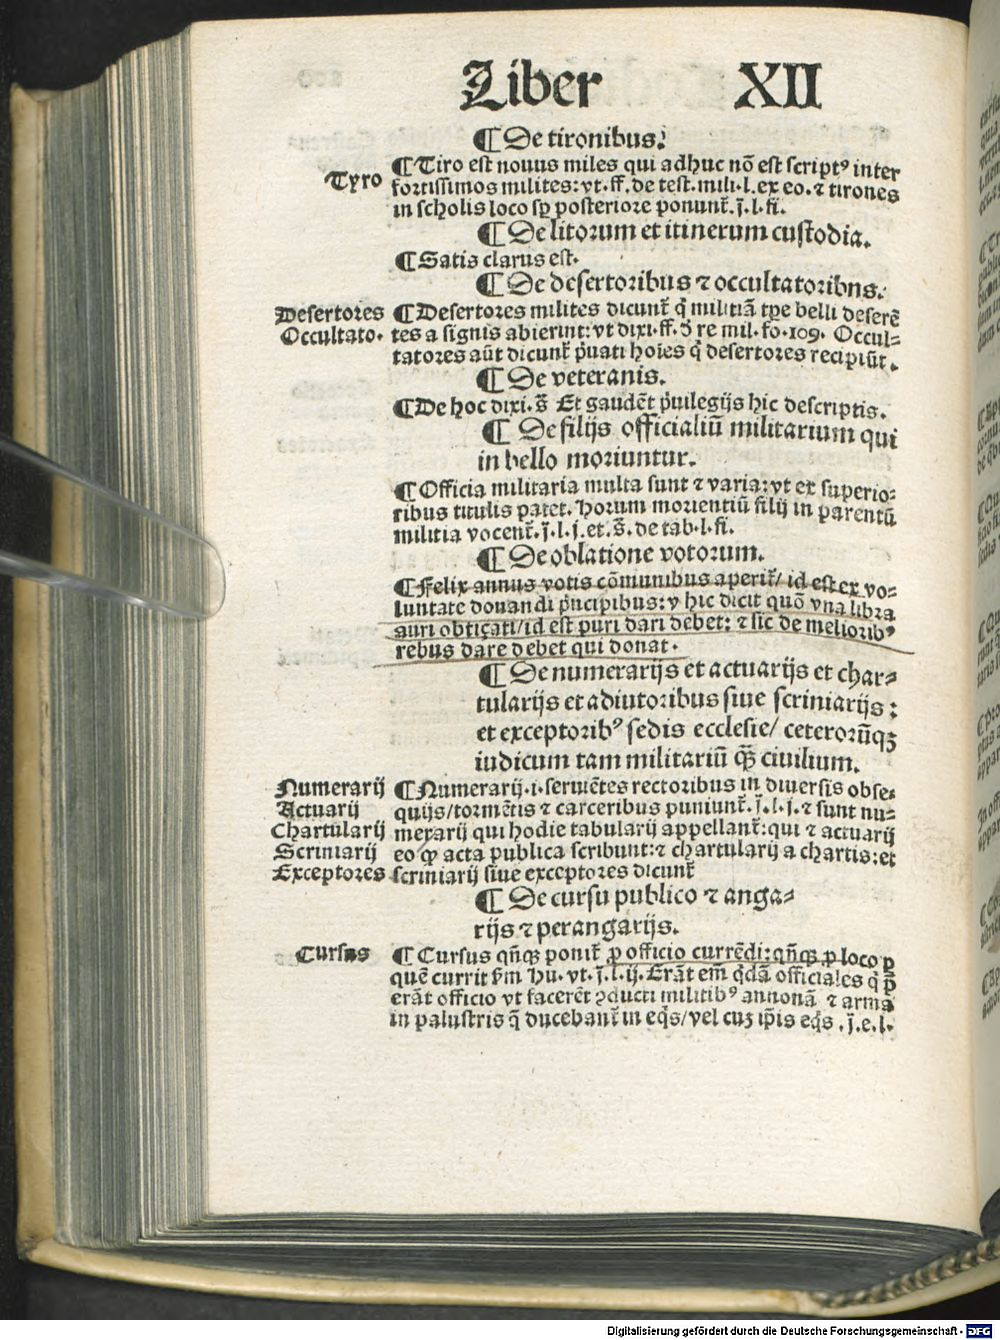 Liber XII
¶ De tironibus.
¶ Tiro est nouus miles qui adhuc nō est scriptꝰ inter
Tyro
fortissimos milites: vt. ff. de test. mili. l. ex eo. ⁊ tirones
in scholis loco sp̄ posteriore ponunt̃. j. l. fi.
¶ De litorum et itinerum custodia.
¶ Satis clarus est.
¶ De desertoribus ⁊ occultatoribns.
Desertores
¶ Desertores milites dicunt̃ q̇ militiā tp̄e belli deserē
Occultato.
tes a signis abierint: vt dixi. ff. d̄ re mil. fo. 109. Occul⸗
tatores aūt dicunt̃ p̱uati hoīes q̇ desertores recipiūt.
¶ De veteranis.
¶ De hoc dixi. s̄. Et gaudēt p̱uilegijs hic descriptis.
¶ De filijs officialiū militarium qui
in bello moriuntur.
¶ Officia militaria multa sunt ⁊ varia: vt ex superio⸗
ribus titulis patet. Horum morientiū filij in parentū
militia vocent̃. j. l. j. et. s̄. de tab. l. fi.
¶ De oblatione votorum.
¶ Felix annus votis cōmunibus aperit̃/ id est ex vo⸗
luntate donandi p̱ncipibus: v hic dicit quō vna libra
auri obticati/ id est puri dari debet: ⁊ sic de melioribꝰ
rebus dare debet qui donat.
¶ De numerarijs et actuarijs et char⸗
tularijs et adiutoribus siue scriniarijs:
et exceptoribꝰ sedis ecclesie/ ceterorūqꝫ
iudicum tam militariū q̄ꝫ ciuilium.
Numerarij
¶ Numerarij. i. seruētes rectoribus in diuersis obse⸗
Actuarij
quijs/ tormētis ⁊ carceribus puniunt̃. j. l. j. ⁊ sunt nu⸗
Chartularij
merarij qui hodie tabularij appellant̃: qui ⁊ actuarij
Scriniarij
eo ꝙ acta publica scribunt: ⁊ chartularij a chartis: et
Exceptores
scriniarij siue exceptores dicunt̃
¶ De cursu publico ⁊ anga⸗
rijs ⁊ perangarijs.
Cursus
¶ Cursus qn̄qꝫ ponit̃ ꝓ officio currēdi: qn̄qꝫ ꝓ loco ꝑ
quē currit s̄m Hu. vt. j. l. ij. Erāt em̄ q̇dā officiales q̇ p̄
erāt officio vt facerēt ꝯducti militibꝰ annonā ⁊ arma
in palustris q̄ ducebant̃ in eq̇s/ vel cuꝫ ip̄is eq̇s. j. e. l.
Digitalisierung gefördert durch die Deutsche Forschungsgemeinschaft - DFG